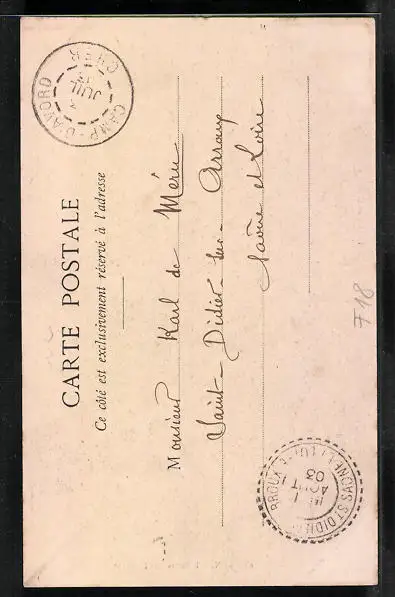 CARTE POSTALE
Ce côté est exclusivement réservé à l'adresse
Monsieur Karl de Méru
Saint-Didier-sur-Arroux
Saône et Loire
CAMP-D'AVORD
CHER
JUIL
AOUT
03
F18